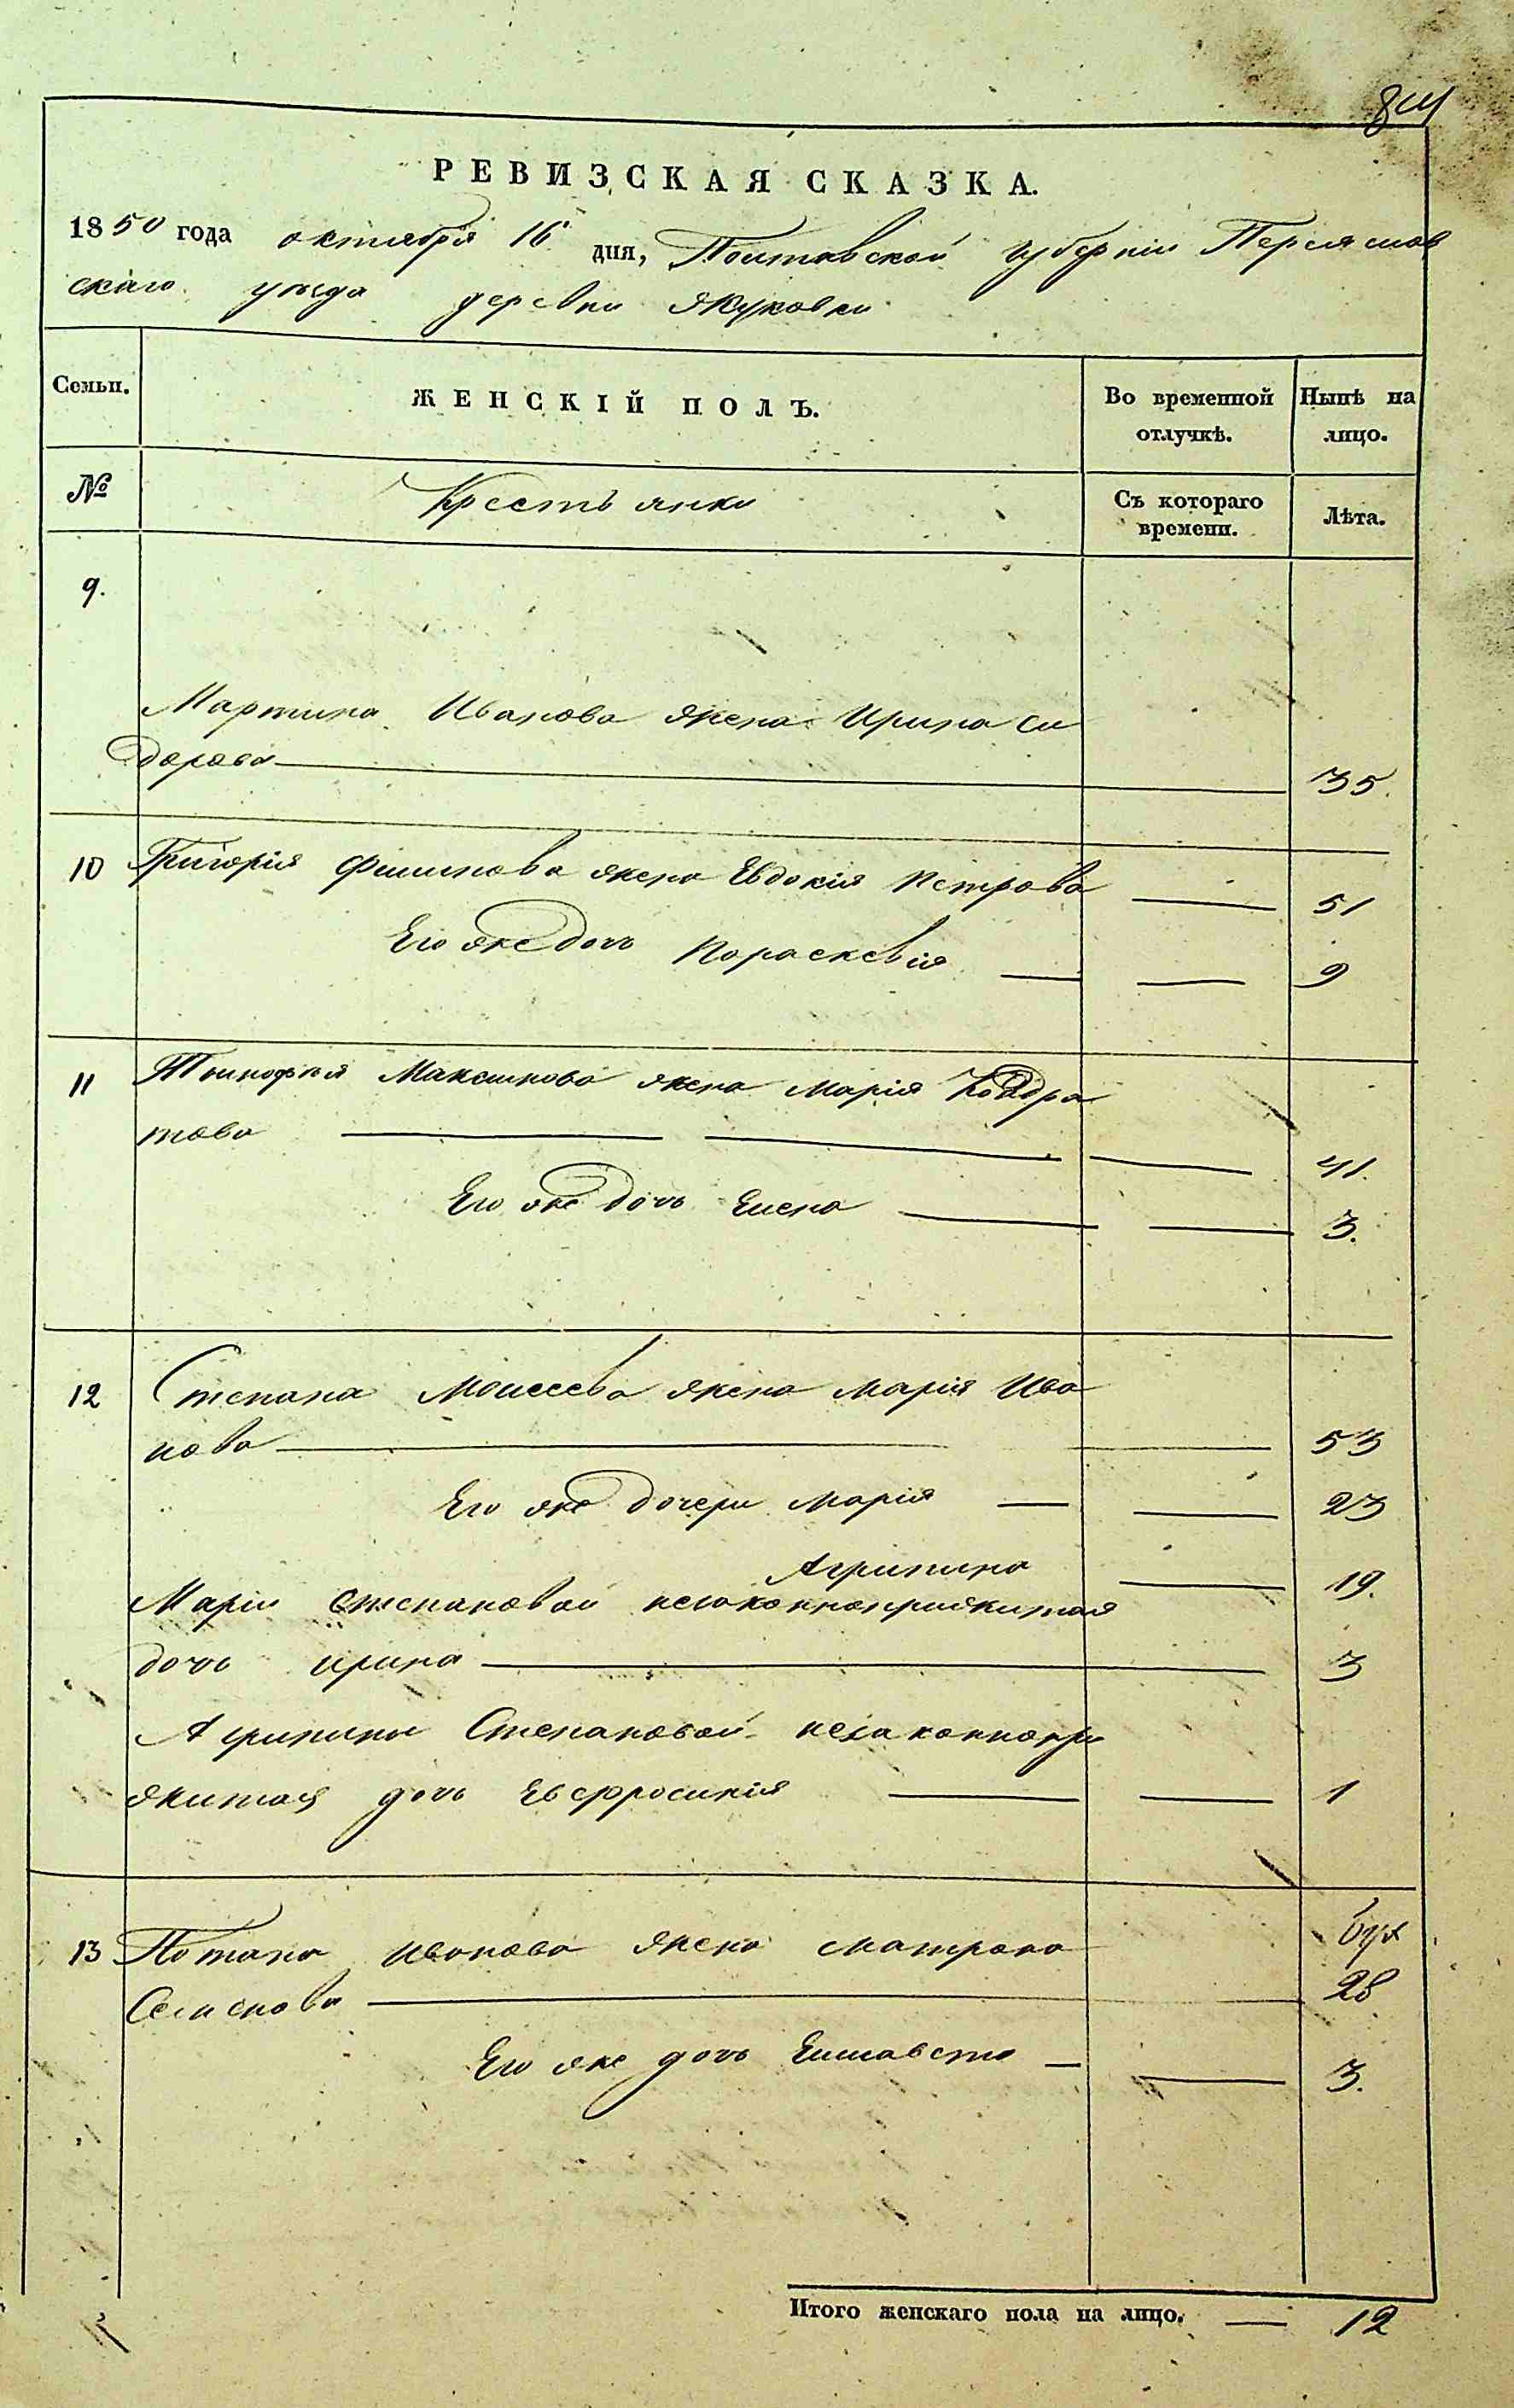 84
РЕВИЗСКАЯ СКАЗКА.
1850 года октября 16 дня, Полтавской губерніи Переяслов
скаго уезда деревни Якуковки
Семьи. ЖЕНСКІЙ ПОЛЪ. Во временной отлучкѣ. Нынѣ на лицо.
№ Крестьянки Съ котораго времени. Лѣта.
9.
Мартина Иванова жена Ирина Си
дорова 35.
10 Григорія Филипова жена Евдокія Петрова 51
Его же дочь Параскевія 9
11 Тимофея Максимова жена Марія Кодра
това 41.
Его же дочь Елена 3.
12 Степана Моисеева жена Марія Ива
нова 53
Его же дочери Марія 23
Агрипина 19.
Маріи Степановой незаконноприжитая
дочь Ирина 3
Агрипины Степановой незаконнопри
житая дочь Евфросинія 1
13 Потапа Иванова жена Матрона
Семенова 28
Его же дочь Елисавета 3.
Итого женскаго пола на лицо. 12